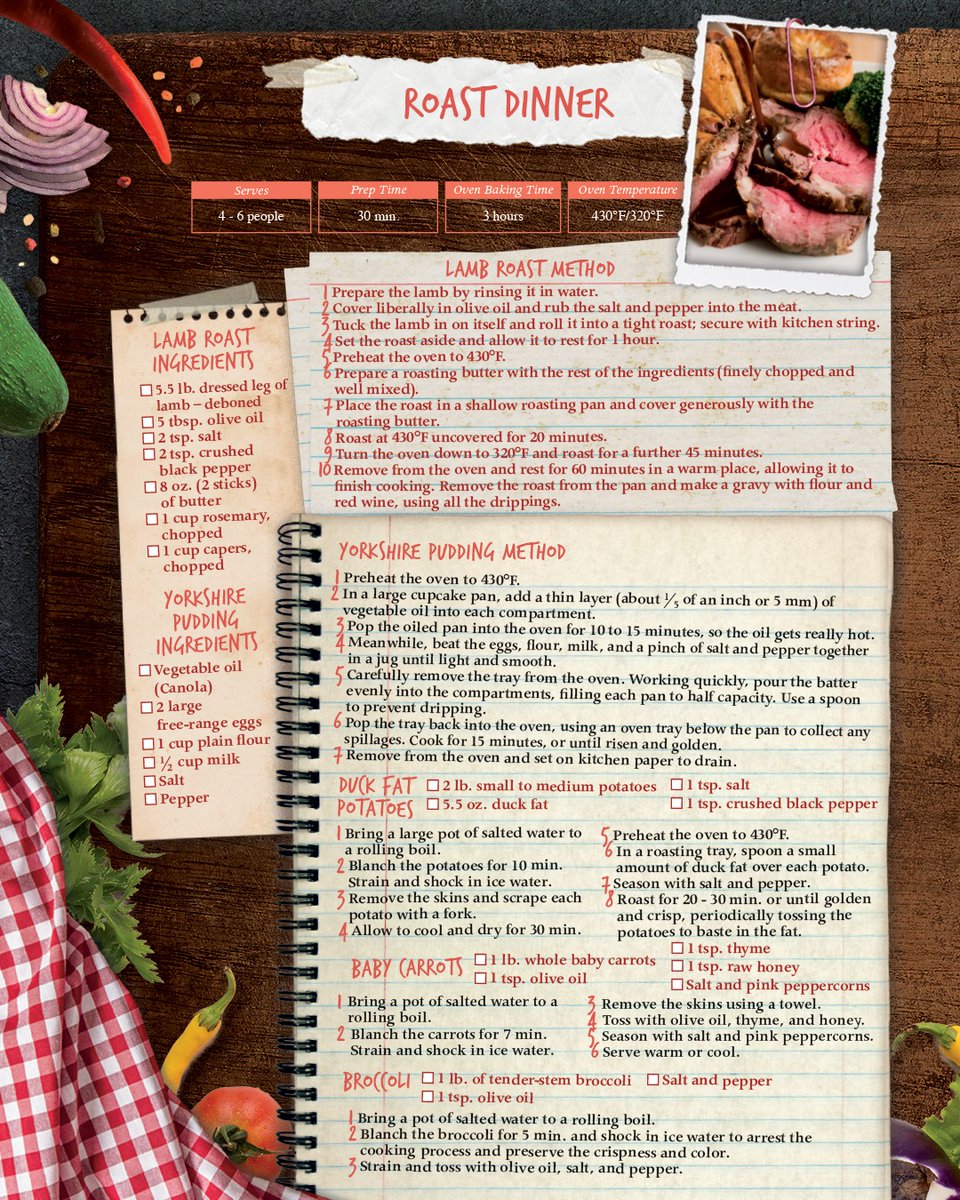 ROAST DINNER
Serves
4 - 6 people
Prep Time
30 min.
Oven Baking Time
3 hours
Oven Temperature
430°F/320°F
LAMB ROAST METHOD
1 Prepare the lamb by rinsing it in water.
2 Cover liberally in olive oil and rub the salt and pepper into the meat.
3 Tuck the lamb in on itself and roll it into a tight roast; secure with kitchen string.
4 Set the roast aside and allow it to rest for 1 hour.
5 Preheat the oven to 430°F.
6 Prepare a roasting butter with the rest of the ingredients (finely chopped and
well mixed).
7 Place the roast in a shallow roasting pan and cover generously with the
roasting butter.
8 Roast at 430°F uncovered for 20 minutes.
9 Turn the oven down to 320°F and roast for a further 45 minutes.
10 Remove from the oven and rest for 60 minutes in a warm place, allowing it to
finish cooking. Remove the roast from the pan and make a gravy with flour and
red wine, using all the drippings.
LAMB ROAST
INGREDIENTS
5.5 lb. dressed leg of
lamb – deboned
5 tbsp. olive oil
2 tsp. salt
2 tsp. crushed
black pepper
8 oz. (2 sticks)
of butter
1 cup rosemary,
chopped
1 cup capers,
chopped
YORKSHIRE
PUDDING
INGREDIENTS
Vegetable oil
(Canola)
2 large
free-range eggs
1 cup plain flour
½ cup milk
Salt
Pepper
YORKSHIRE PUDDING METHOD
1 Preheat the oven to 430°F.
2 In a large cupcake pan, add a thin layer (about ⅕ of an inch or 5 mm) of
vegetable oil into each compartment.
3 Pop the oiled pan into the oven for 10 to 15 minutes, so the oil gets really hot.
4 Meanwhile, beat the eggs, flour, milk, and a pinch of salt and pepper together
in a jug until light and smooth.
5 Carefully remove the tray from the oven. Working quickly, pour the batter
evenly into the compartments, filling each pan to half capacity. Use a spoon
to prevent dripping.
6 Pop the tray back into the oven, using an oven tray below the pan to collect any
spillages. Cook for 15 minutes, or until risen and golden.
7 Remove from the oven and set on kitchen paper to drain.
DUCK FAT
POTATOES
2 lb. small to medium potatoes
5.5 oz. duck fat
1 tsp. salt
1 tsp. crushed black pepper
1 Bring a large pot of salted water to
a rolling boil.
2 Blanch the potatoes for 10 min.
Strain and shock in ice water.
3 Remove the skins and scrape each
potato with a fork.
4 Allow to cool and dry for 30 min.
5 Preheat the oven to 430°F.
6 In a roasting tray, spoon a small
amount of duck fat over each potato.
7 Season with salt and pepper.
8 Roast for 20 - 30 min. or until golden
and crisp, periodically tossing the
potatoes to baste in the fat.
BABY CARROTS
1 lb. whole baby carrots
1 tsp. olive oil
1 tsp. thyme
1 tsp. raw honey
Salt and pink peppercorns
1 Bring a pot of salted water to a
rolling boil.
2 Blanch the carrots for 7 min.
Strain and shock in ice water.
3 Remove the skins using a towel.
4 Toss with olive oil, thyme, and honey.
5 Season with salt and pink peppercorns.
6 Serve warm or cool.
BROCCOLI
1 lb. of tender-stem broccoli
1 tsp. olive oil
Salt and pepper
1 Bring a pot of salted water to a rolling boil.
2 Blanch the broccoli for 5 min. and shock in ice water to arrest the
cooking process and preserve the crispness and color.
3 Strain and toss with olive oil, salt, and pepper.